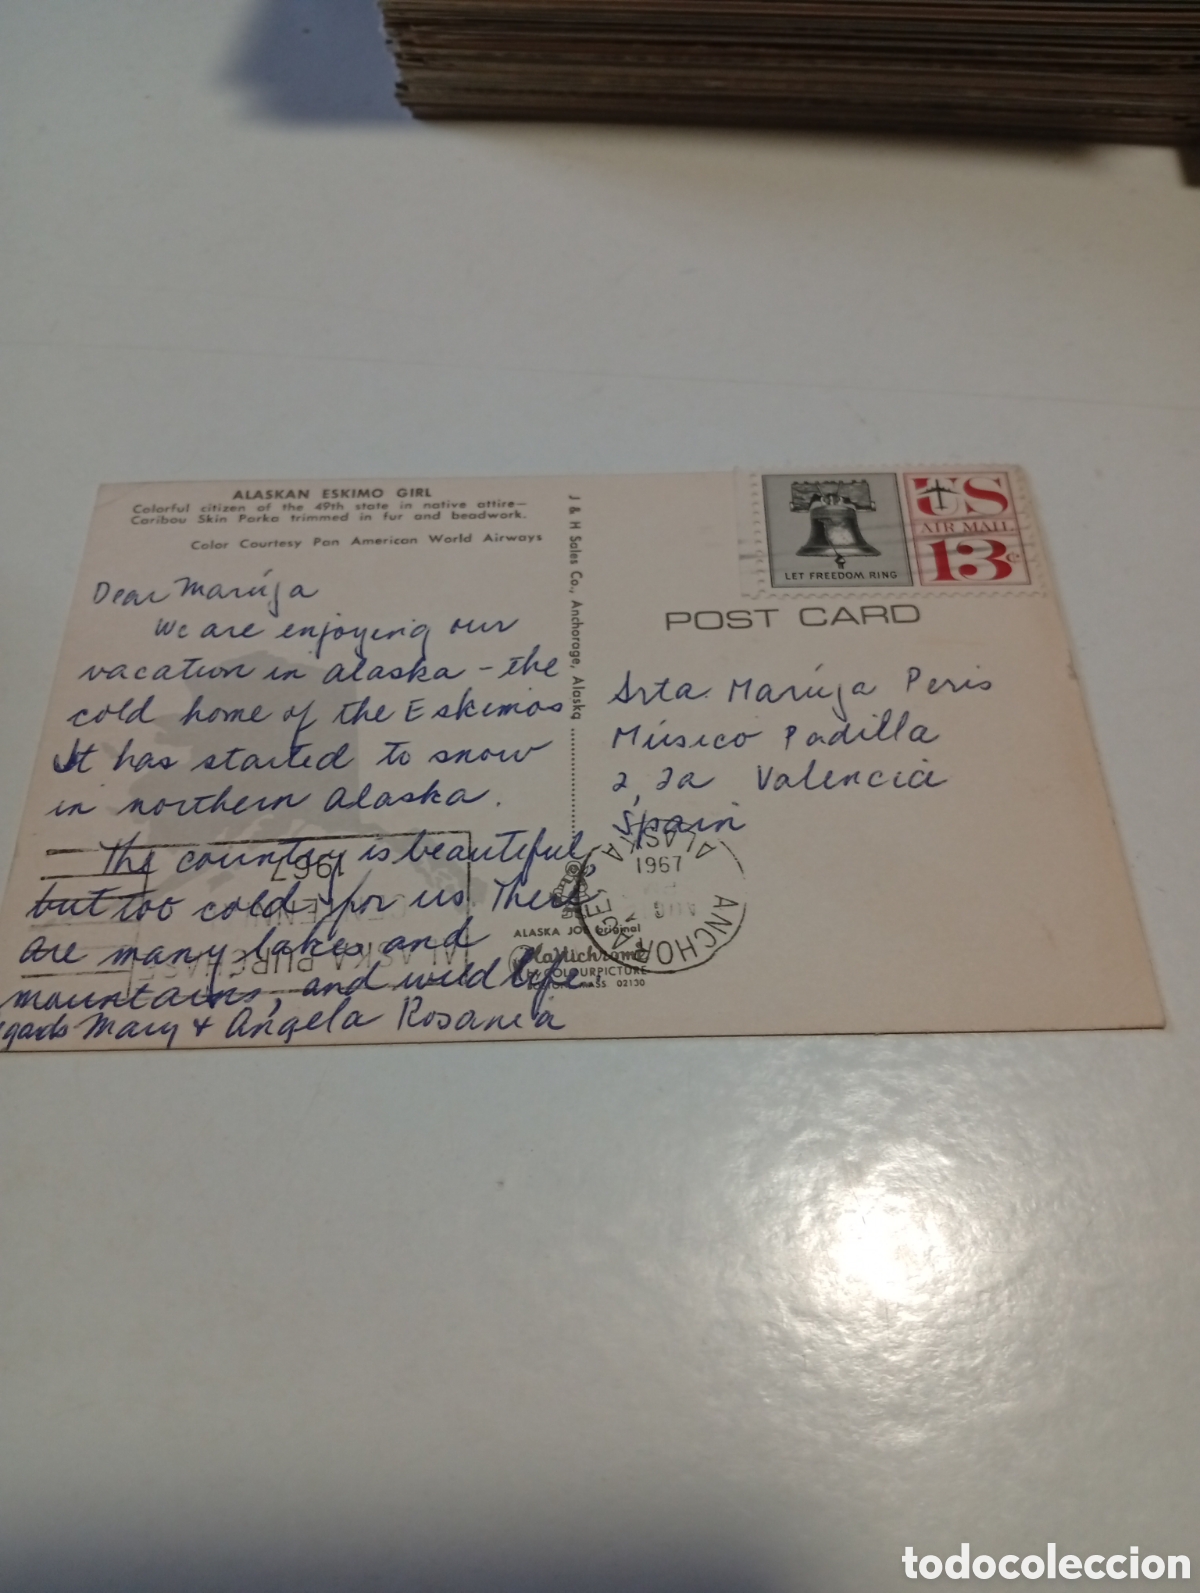 ALASKAN ESKIMO GIRL
Colorful citizen of the 49th state in native attire—
Caribou Skin Parka trimmed in fur and beadwork.
Color Courtesy Pan American World Airways
Dear Marúja
We are enjoying our
vacation in Alaska - the
cold home of the Eskimos
It has started to snow
in northern Alaska.
The country is beautiful
but too cold for us. There
are many lakes and
mountains, and wild life.
egards Mary & Angela Rosania
J & H Sales Co., Anchorage, Alaska
LET FREEDOM RING
US
AIR MAIL
13c
POST CARD
Srta. Marúja Peris
Músico Padilla
2, 2a Valencia
Spain
ANCHORAGE ALASKA
1967
AUG
1967
ALASKA PURCHASE
ALASKA JOE Original
Plastichrome
by COLOURPICTURE
MASS 02130
todocoleccion